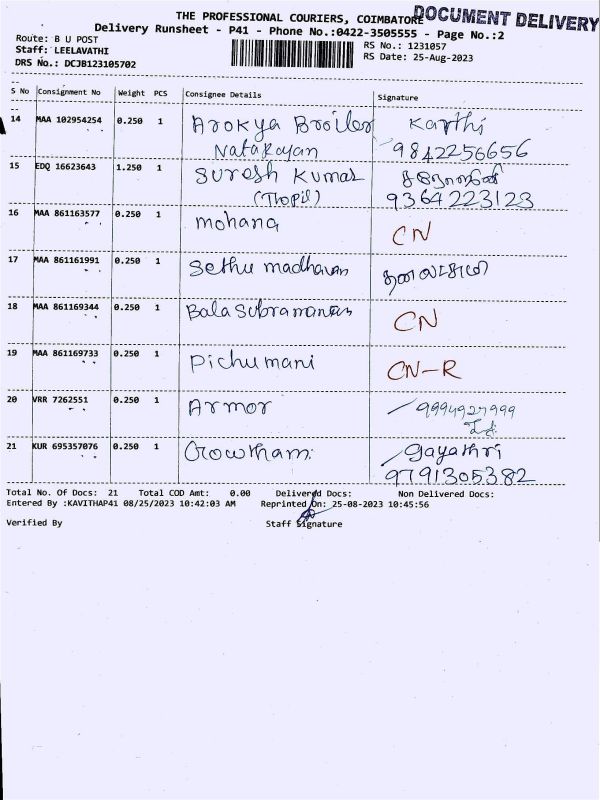 THE PROFESSIONAL COURIERS, COIMBATORE
DOCUMENT DELIVERY
Delivery Runsheet - P41 - Phone No.:0422-3505555 - Page No.:2
Route: B U POST
RS No.: 1231057
Staff: LEELAVATHI
RS Date: 25-Aug-2023
DRS No.: DCJB123105702
S No Consignment No Weight PCS Consignee Details Signature
14 MAA 102954254 0.250 1 Arokya Broiler Karthi
Natarayan 9842256656
15 EDQ 16623643 1.250 1 Suresh Kumar
(Thopil) 9364223123
16 MAA 861163577 0.250 1 mohana CN
17 MAA 861161991 0.250 1 Sethu madhavan
18 MAA 861169344 0.250 1 Bala Subramanian CN
19 MAA 861169733 0.250 1 Pichumani CN-R
20 VRR 7262551 0.250 1 Armor 9994927999
21 KUR 695357076 0.250 1 Gowtham. Gayathri
9791305382
Total No. Of Docs: 21 Total COD Amt: 0.00 Delivered Docs: Non Delivered Docs:
Entered By :KAVITHAP41 08/25/2023 10:42:03 AM Reprinted On: 25-08-2023 10:45:56
Verified By Staff Signature